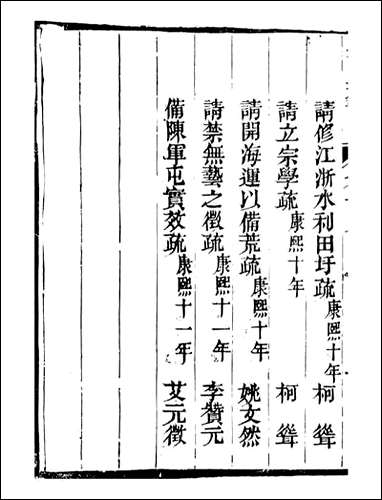 請修江浙水利田圩疏康熙十年 柯聳
請立宗學疏康熙十年 柯聳
請開海運以備荒疏康熙十一年 姚文然
請禁無藝之徵疏康熙十一年 李贊元
備陳軍屯實效疏康熙十一年 艾元徵